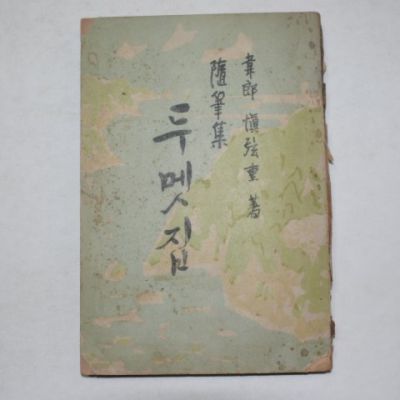 韋郎 愼弦重 著
隨筆集
두멧집